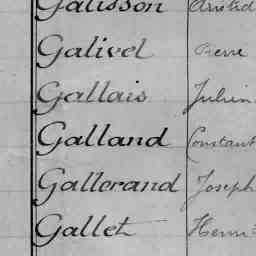 Galisson Aristid
Galivel Pierre
Gallais Julien
Galland Constant
Gallerand Joseph
Gallet Henri